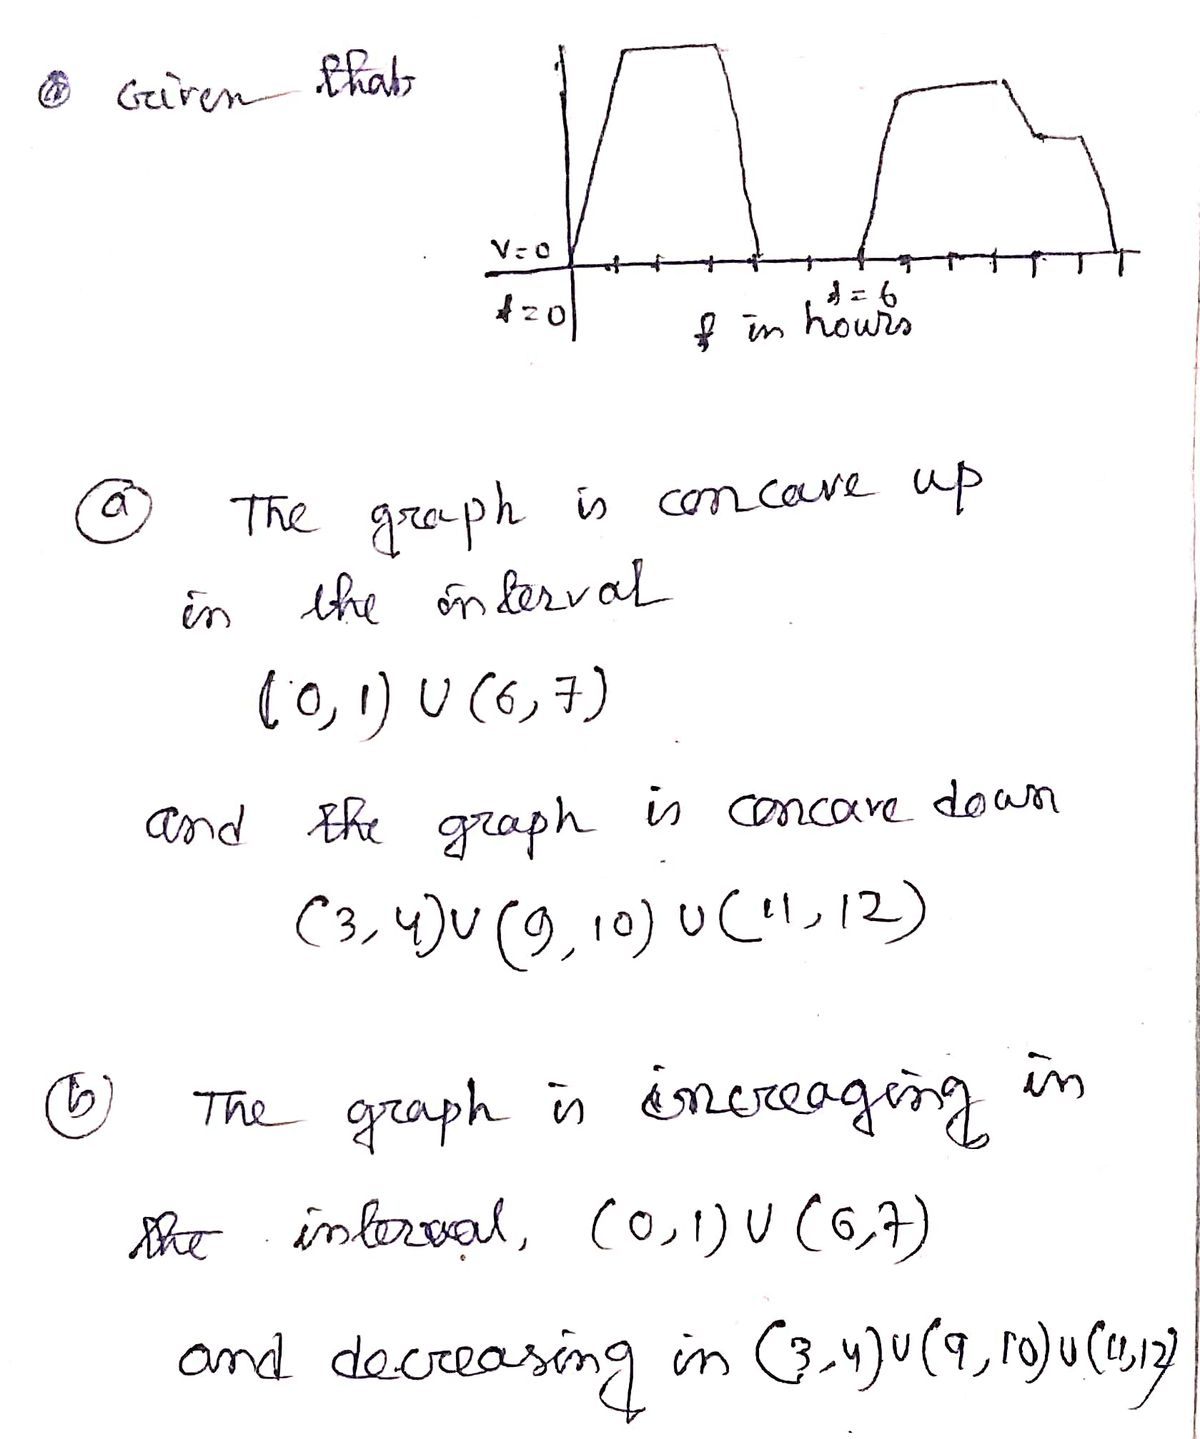 Given that
V=0
t=0
t=6
t in hours
(a) The graph is concave up
in the interval
(0,1) ∪ (6,7)
and the graph is concave down
(3,4)∪(9,10)∪(11,12)
(b) The graph is increaging in
the interval, (0,1) ∪ (6,7)
and decreasing in (3,4)∪(9,10)∪(11,12)